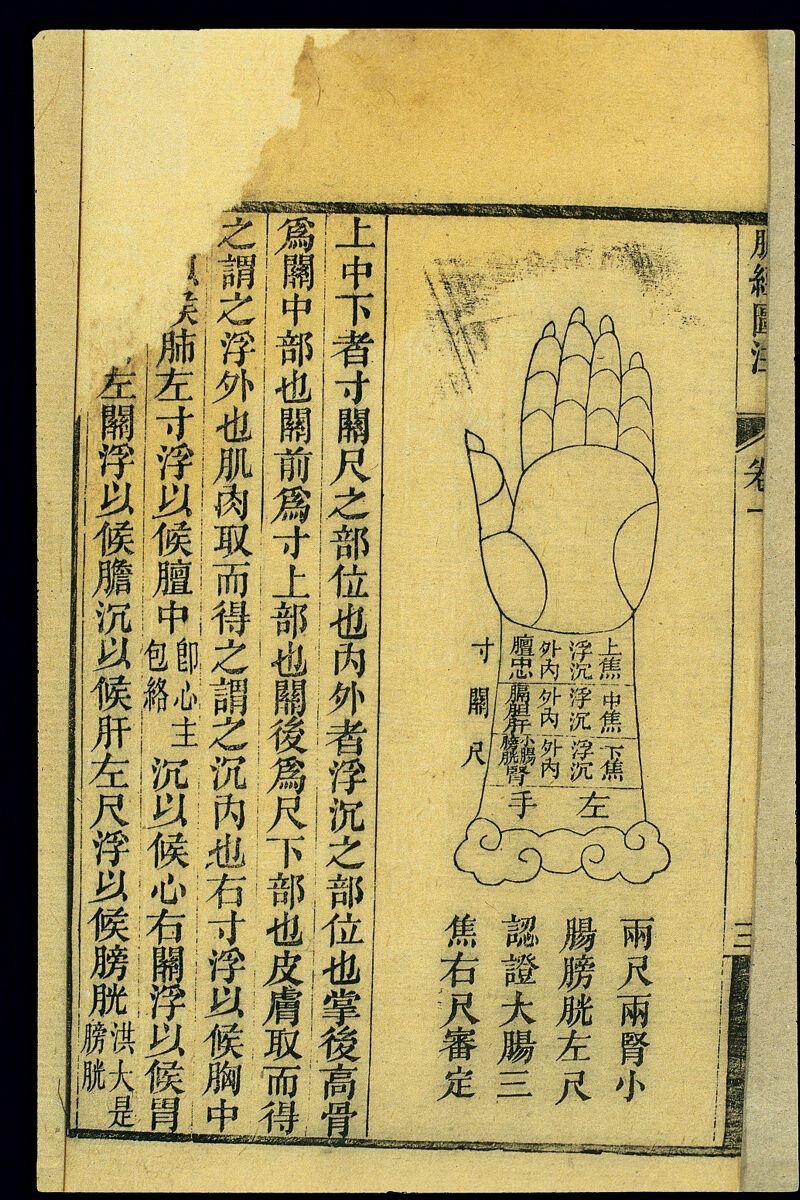 脈經圖注
卷一
三
上焦 浮沉 外內 膻忠
中焦 浮沉 外內 膈膽肝
下焦 浮沉 外內 小腸膀胱腎
寸
關
尺
左手
兩尺兩腎小
腸膀胱左尺
認證大腸三
焦右尺審定
上中下者寸關尺之部位也內外者浮沉之部位也掌後高骨
爲關中部也關前爲寸上部也關後爲尺下部也皮膚取而得
之謂之浮外也肌肉取而得之謂之沉內也右寸浮以候胸中
候肺左寸浮以候膻中卽心主包絡沉以候心右關浮以候胃
左關浮以候膽沉以候肝左尺浮以候膀胱洪大是膀胱